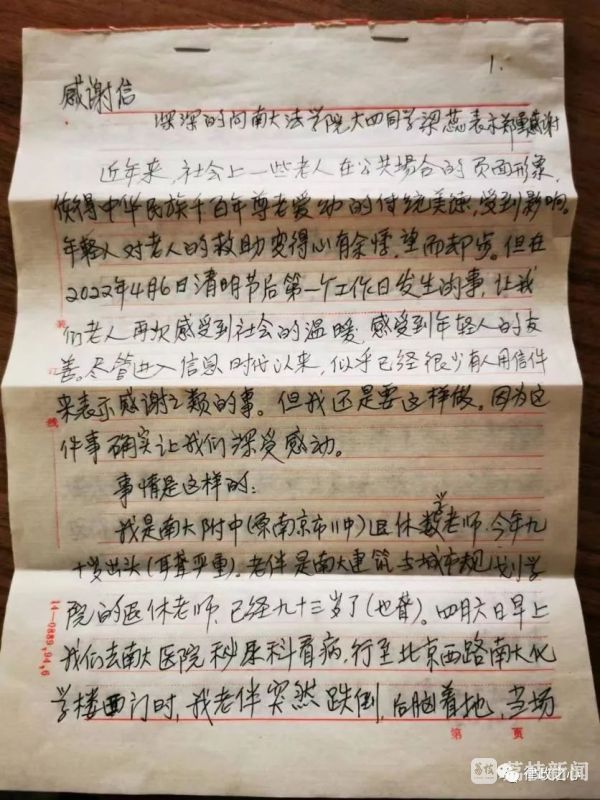 1.
感谢信
深深的向南大法学院大四同学梁蕊表示郑重感谢
近年来,社会上一些老人在公共场合的负面形象,
使得中华民族千百年尊老爱幼的传统美德,受到影响。
年轻人对老人的救助变得心有余悸,望而却步。但在
2022年4月6日清明节后第一个工作日发生的事,让我
们老人再次感受到社会的温暖,感受到年轻人的友
善。尽管进入信息时代以来,似乎已经很少有人用信件
来表示感谢之类的事。但我还是要这样做。因为这
件事确实让我们深受感动。
事情是这样的:
我是南大附中(原南京市11中)退休数学老师.今年九
十岁出头(耳聋严重)。老伴是南大建筑与城市规划学
院的退休老师.已经九十三岁了(也聋)。四月六日早上
我们去南大医院泌尿科看病,行至北京西路南大化
学楼西门时,我老伴突然跌倒,后脑着地,当场
装
线
14—0889,94,6
第 页
荔枝新闻
律政之心